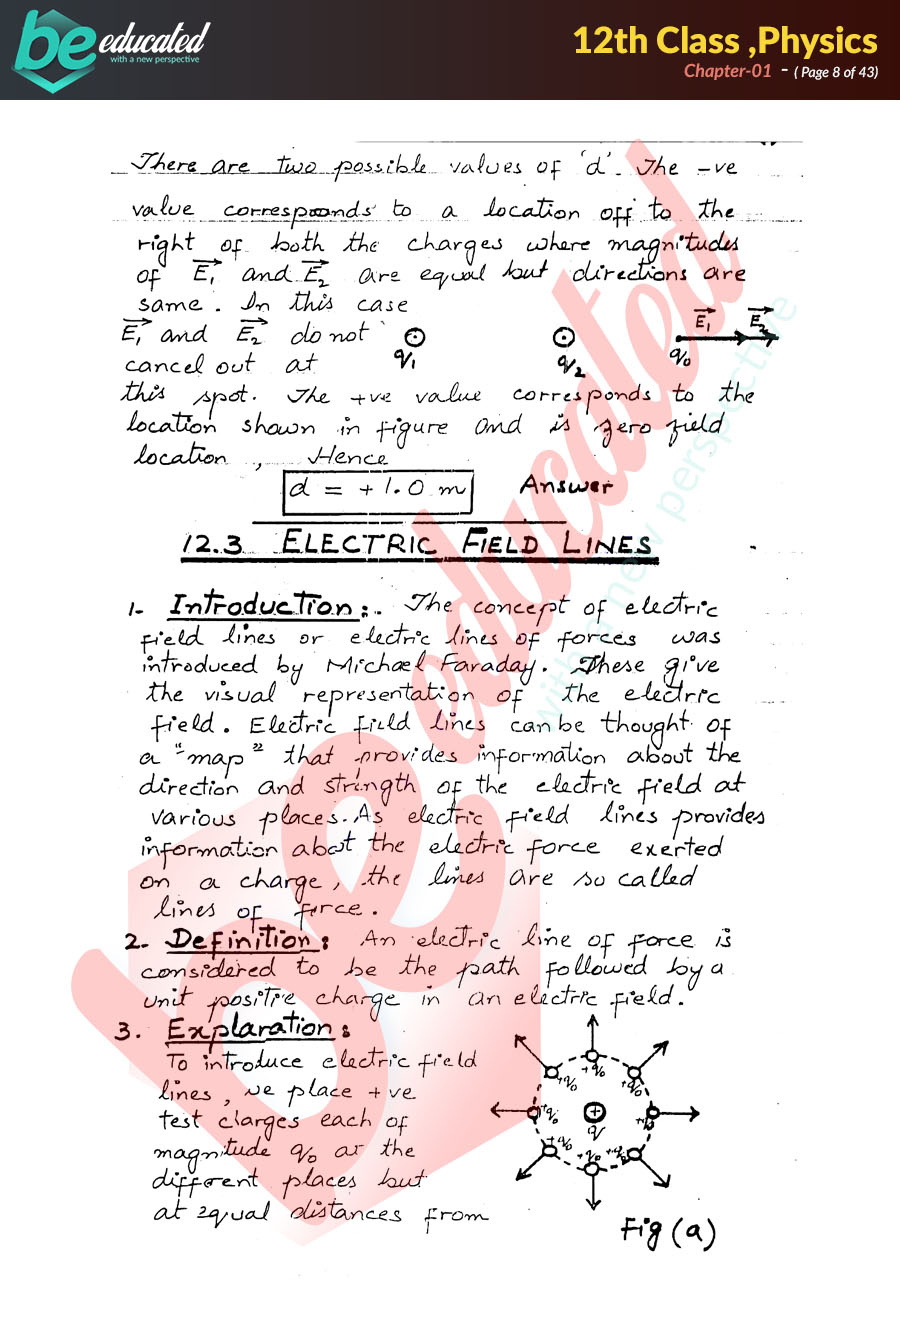 be educated
with a new perspective
12th Class ,Physics
Chapter-01 - ( Page 8 of 43)
There are two possible values of 'd'. The -ve
value corresponds to a location off to the
right of both the charges where magnitudes
of E₁ and E₂ are equal but directions are
same. In this case
E₁ and E₂ do not
cancel out at
q₁
q₂
q₀
E₁
E₂
this spot. The +ve value corresponds to the
location shown in figure and is zero field
location, Hence
d = +1.0 m Answer
12.3 ELECTRIC FIELD LINES
1- Introduction:- The concept of electric
field lines or electric lines of forces was
introduced by Michael Faraday. These give
the visual representation of the electric
field. Electric field lines can be thought of
a "map" that provides information about the
direction and strength of the electric field at
various places. As electric field lines provides
information about the electric force exerted
on a charge, the lines are so called
lines of force.
2- Definition: An electric line of force is
considered to be the path followed by a
unit positive charge in an electric field.
3. Explaration:
To introduce electric field
lines, we place +ve
test charges each of
magnitude q₀ at the
different places but
at equal distances from
+q₀
+q₀
+q₀
+q₀
+
q
+q₀
+q₀
+q₀
+q₀
Fig (a)
be educated
with a new perspective